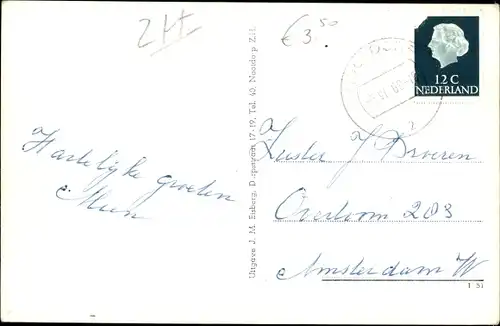 2 H
€ 3.50
12 C
NEDERLAND
Hartelijke groeten
Mien
Uitgave J. M. Esberg, Dorpstraat 17-19, Tel. 40, Nootdorp Z.H.
Zuster J Broeren
Overtoom 203
Amsterdam W
T 51